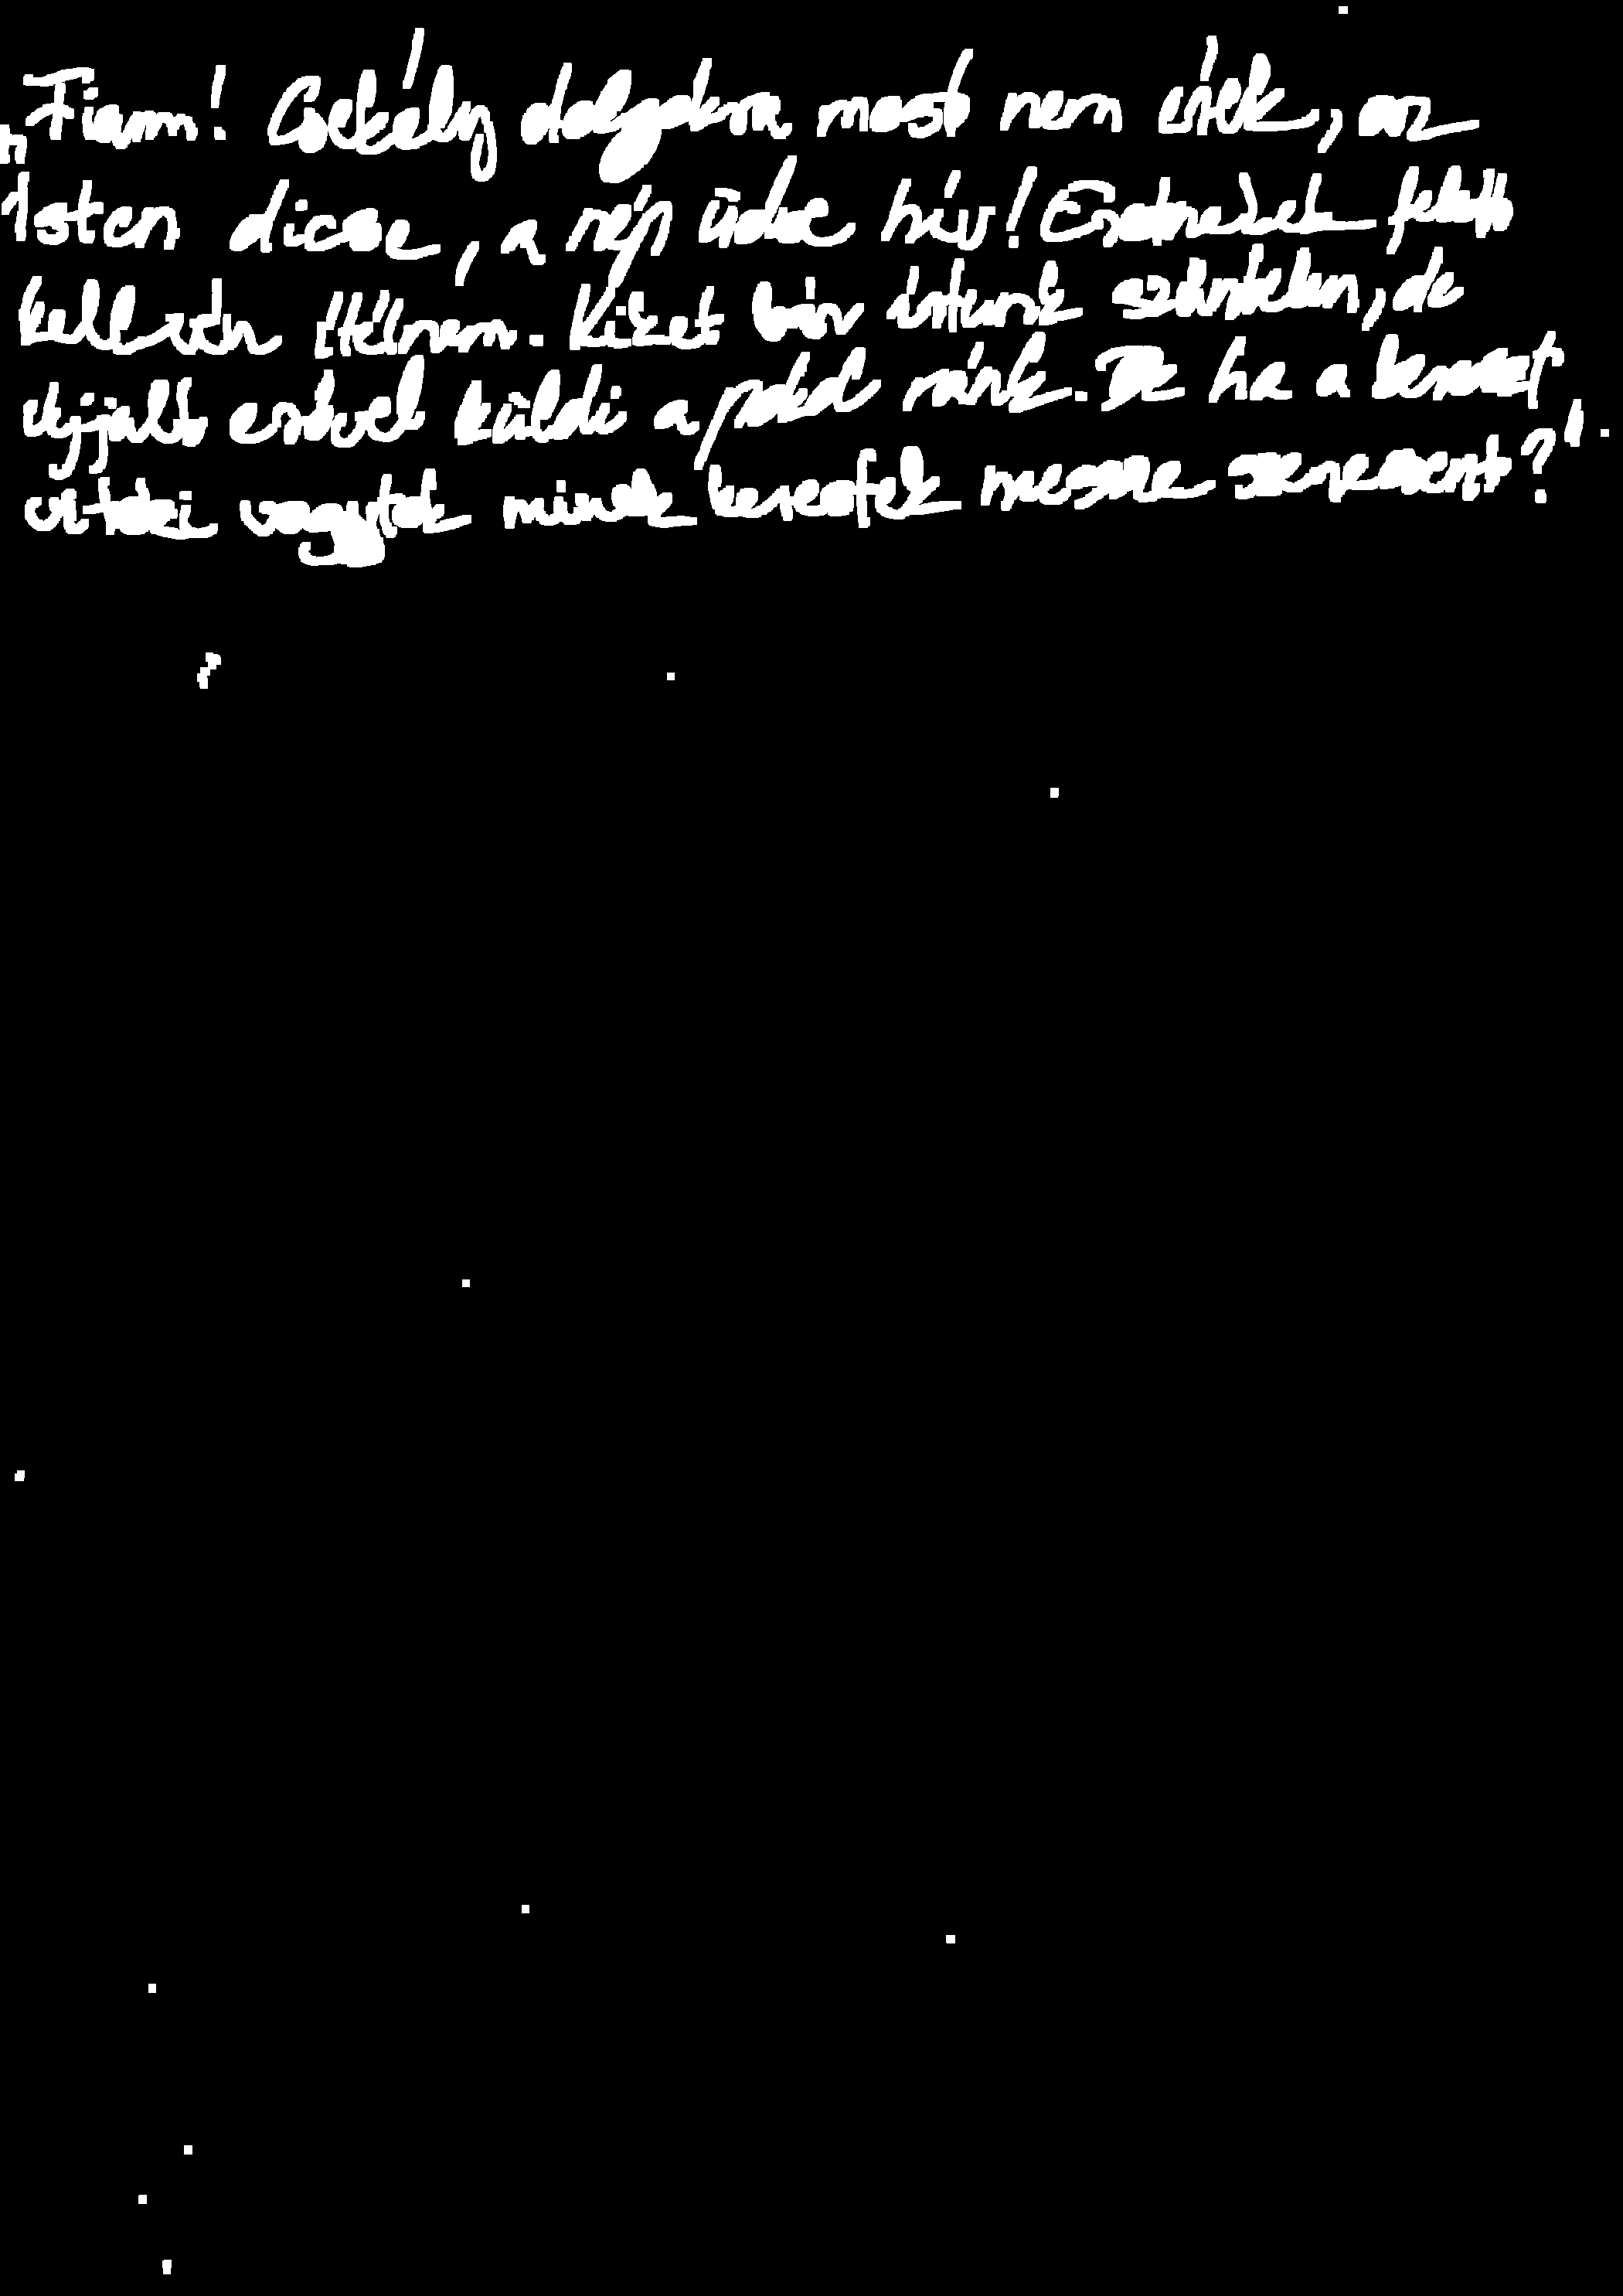 „Fiam! Csekély dolgokra most nem érek, az
Isten dicse, a nép üdve hív! Eretnekek felett
kell ítélnem. Kiket bár írtunk szüntelen, de
újjabb erővel küldi a pokol ránk. De ha a kereszt
vitézi vagytok minek kerestek messze szerecsent?".